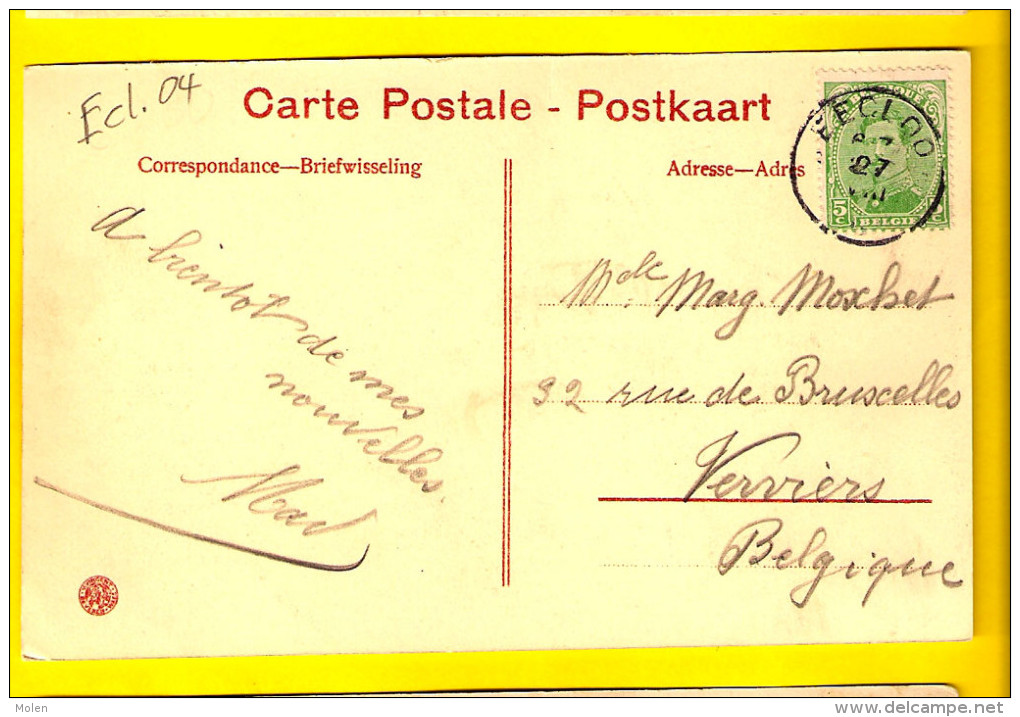 Ecl. 04
Carte Postale - Postkaart
Correspondance—Briefwisseling
Adresse—Adres
EECLOO
27
VIII
5c
BELGIË
A bientôt de mes
nouvelles.
Mad
Mdle Marg. Moxhet
32 rue de Bruxelles
Verviers
Belgique
Molen
delcampe.net